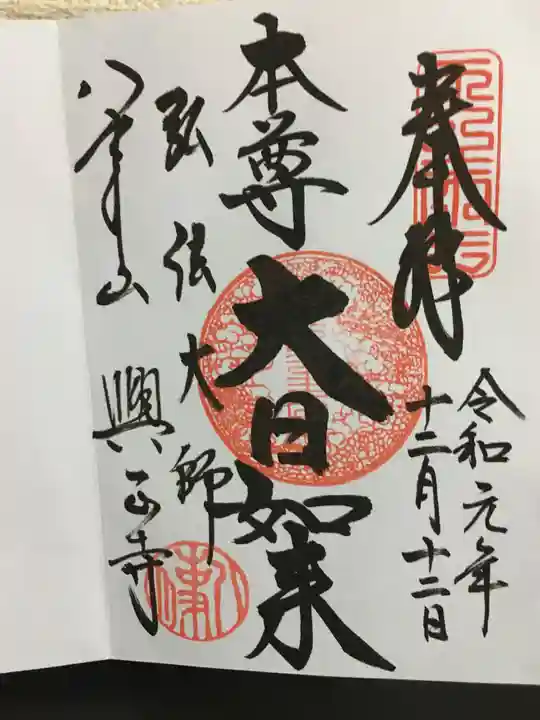 奉拝
令和元年
十二月十二日
本尊 大日如来
弘法大師
八事山 興正寺